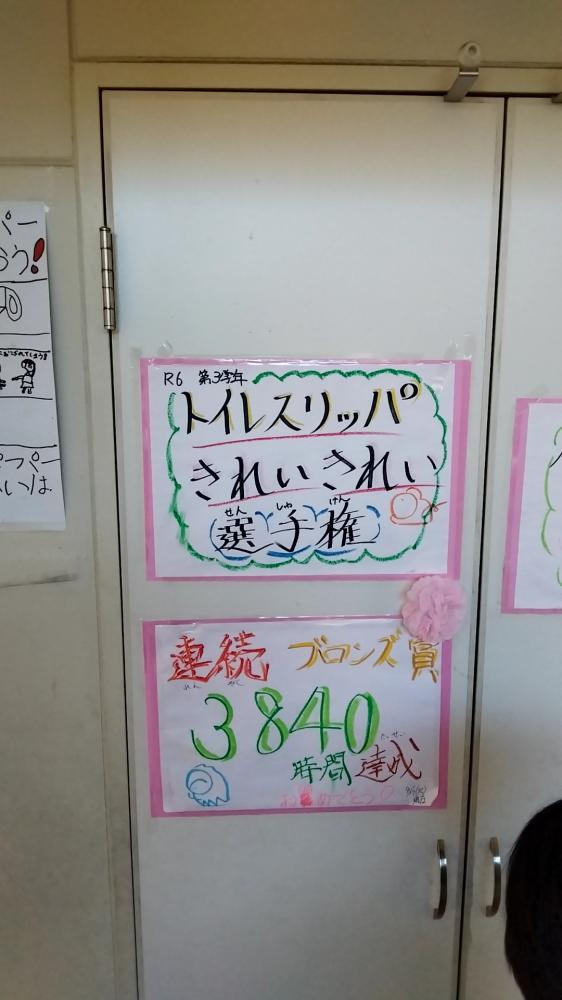 R6 第3学年
トイレスリッパ
きれいきれい
せん しゅ けん
選手権
連続 ブロンズ賞
れん ぞく
3840
たっせい
時間 達成
おめでとう
パー
う!